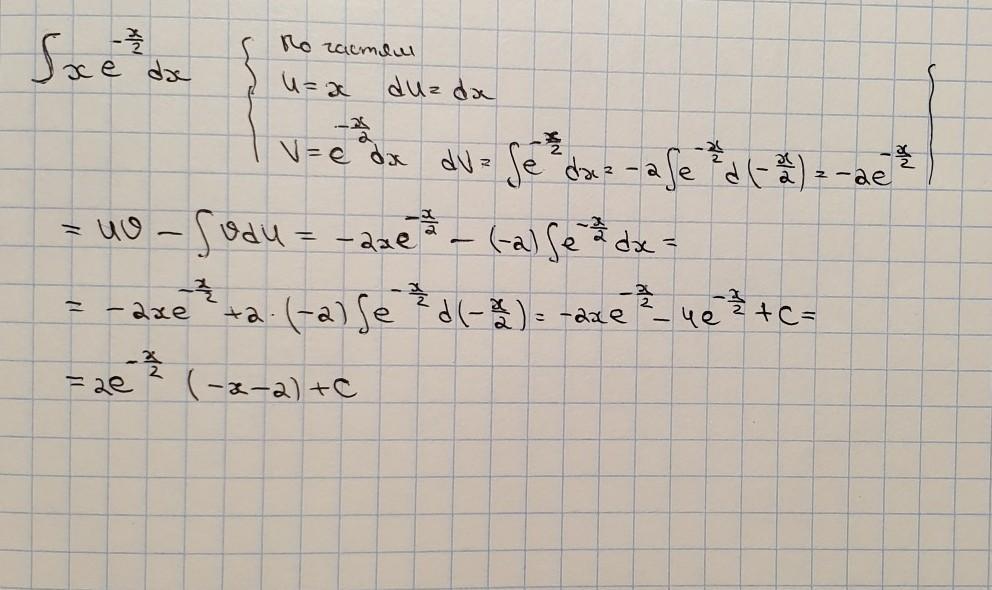 ∫ x e^{-x/2} dx { По частям
U = x dU = dx
V = e^{-x/2} dx dV = ∫ e^{-x/2} dx = -2 ∫ e^{-x/2} d(-x/2) = -2e^{-x/2} }
= UV - ∫ V dU = -2xe^{-x/2} - (-2) ∫ e^{-x/2} dx =
= -2xe^{-x/2} + 2 · (-2) ∫ e^{-x/2} d(-x/2) = -2xe^{-x/2} - 4e^{-x/2} + C =
= 2e^{-x/2} (-x-2) + C